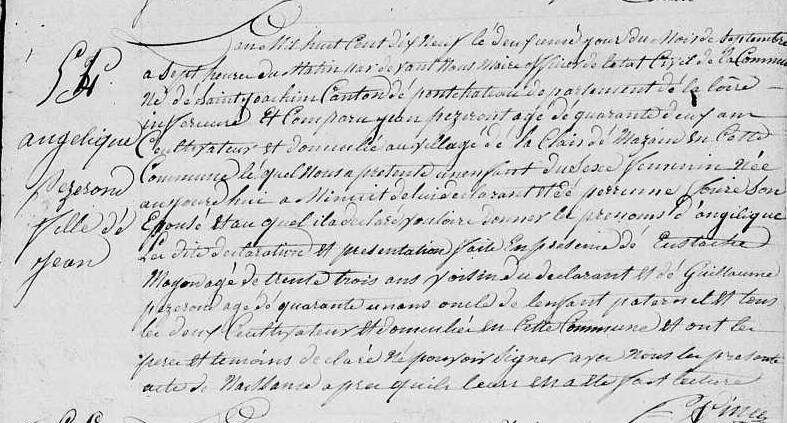 L'an Mil huit Cent dix neuf le deuxieme jour du Mois de Septembre
a Sept heure du Matin par devant Nous Maire officier de letat Civil de la Commu
ne de Saint Joachim Canton de pontchateau departement de la loire
inferieure Est Comparu jean pezeron agé de quarante deux ans
Cultivateur et domicilié au village de la Clair de Mazain en Cette
Commune lequel Nous a presente un enfant du Sexe feminin Née
aujourd'hui a Minuit de lui declarant Et de perrinne Son
Epouse Et au quel il a declaré vouloire donner le prenoms d'angelique
La dite declaration Et presentation faite En presence de Eustache
Moyon agé de trente trois ans voisin du declarant Et de Guillaume
pezeron age de quarante un ans oncle de lenfant paternel Et tous
les deux Cultivateur Et domicilié en Cette Commune Et ont les
pere Et temoins declaré Ne pouvoir Signer avec Nous les presente
acte de Naissance apres quils leurs en a Eté fait lecture
angelique
pezeron
fille de
jean